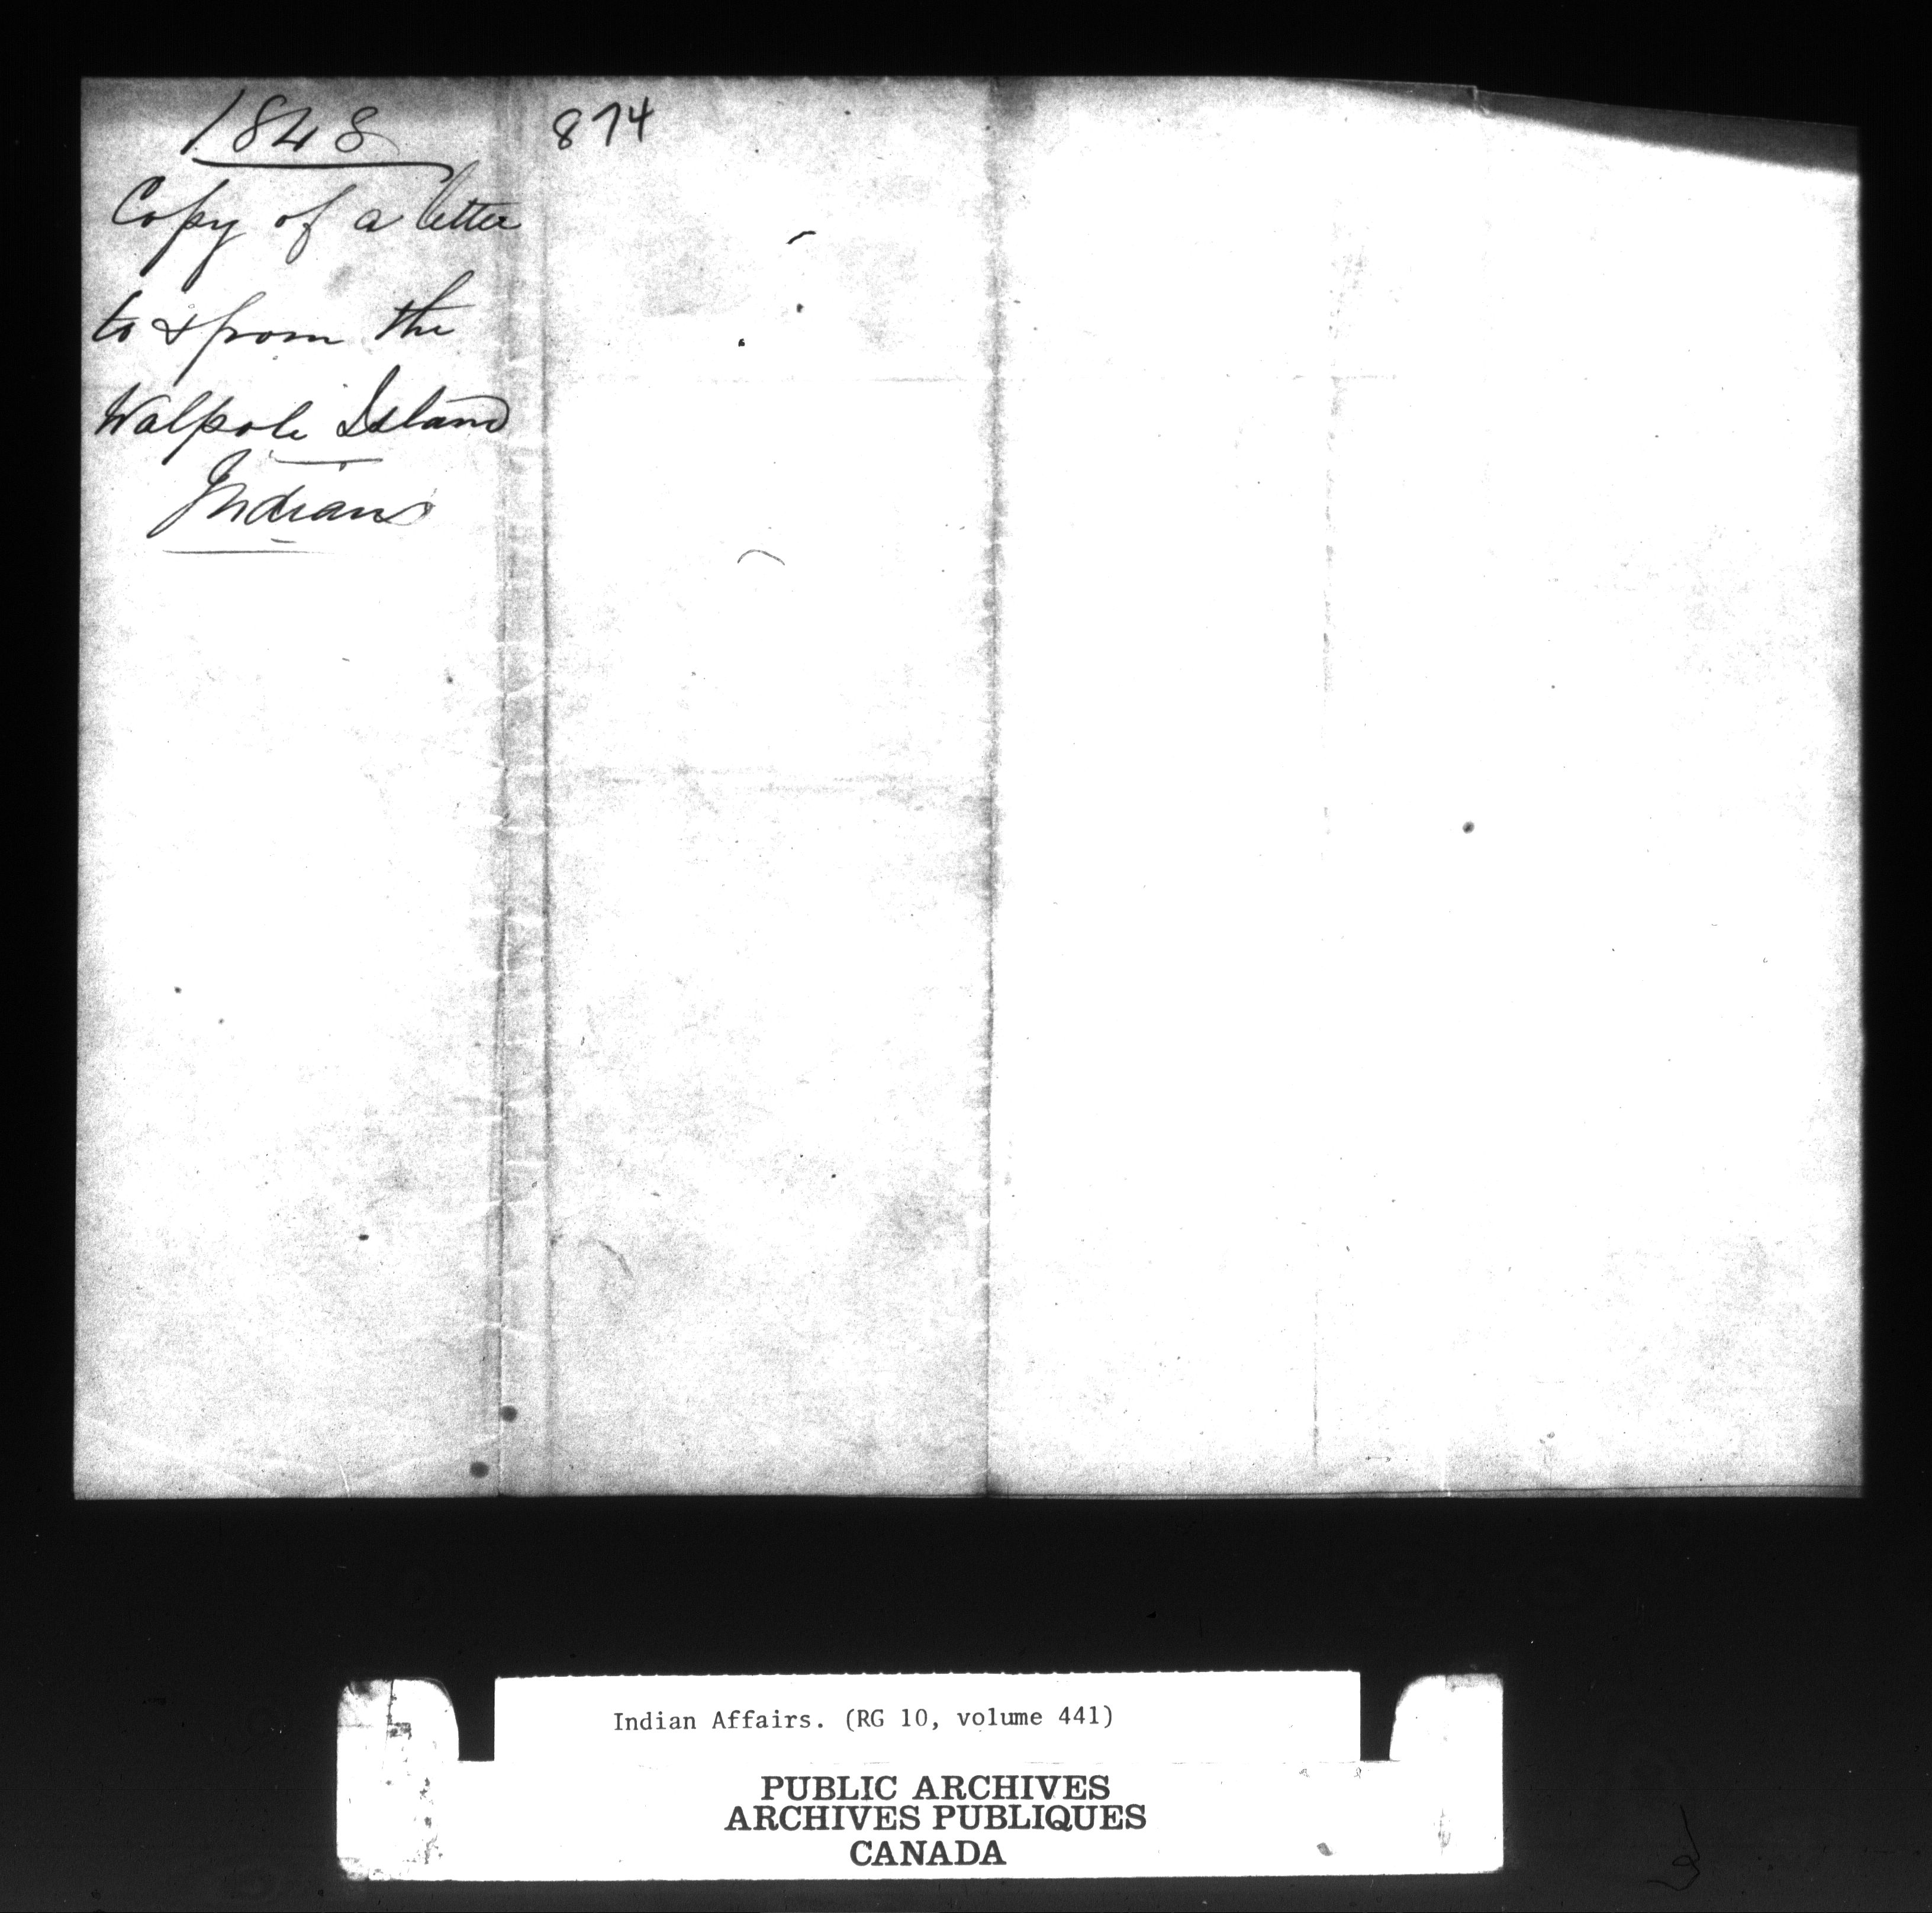 1848
Copy of a letter
to & from the
Walpole Island
Indians
874
Indian Affairs. (RG 10, volume 441)
PUBLIC ARCHIVES
ARCHIVES PUBLIQUES
CANADA